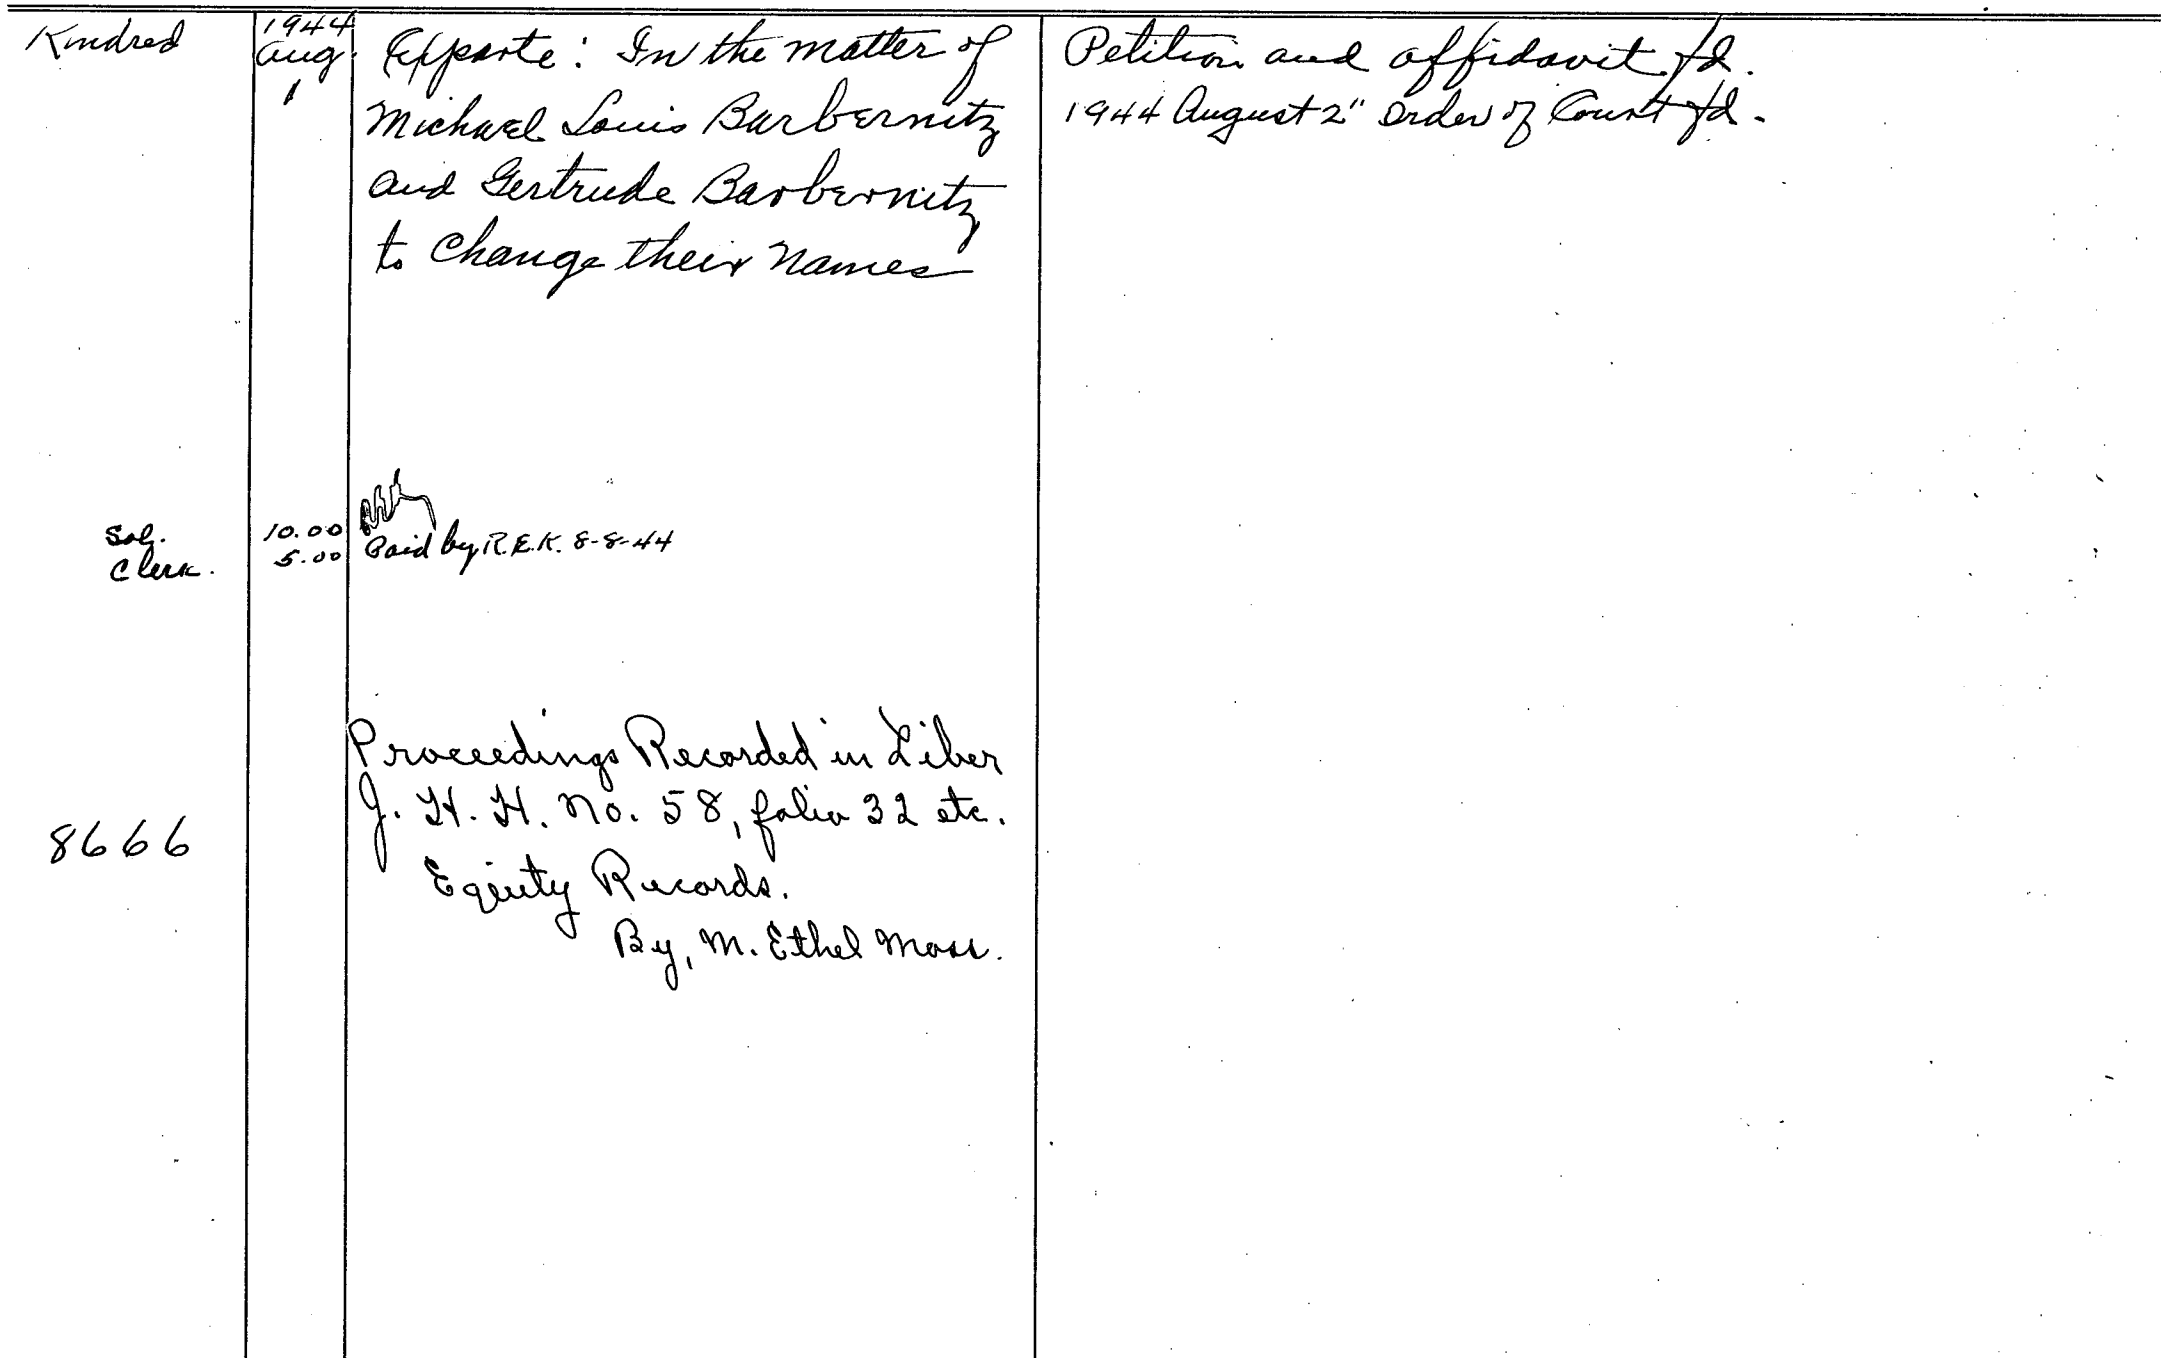 Kindred
1944
Aug.
1
Exparte: In the matter of
Michael Louis Barbernitz
and Gertrude Barbernitz
to Change their names
Petition and affidavit fd.
1944 August 2" Order of Court fd.
Sol. 10.00
Clerk. 5.00 Paid by R.E.K. 8-8-44
8666
Proceedings Recorded in Liber
J. H. H. No. 58, folio 32 etc.
Equity Records.
By, M. Ethel Moss.